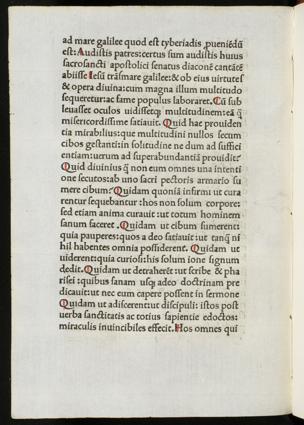 ad mare galilee quod est tyberiadis ꝓueniẽdũ
est: Audistis patres: certus sum audistis huius
sacrosancti apostolici senatus diaconẽ cantãtẽ
abiisse Iesũ trãsmare galilee: & ob eius uirtutes
& opera diuina: cum magna illum multitudo
sequeretur: ac fame populus laboraret. Cũ sub
leuasset oculos uidissetqꝫ multitudinem: eã ꝙ
misericordissime satiauit. Quid hac prouiden
tia mirabilius: que multitudini nullos secum
cibos gestanti: in solitudine ne dum ad suffici
entiam: uerum ad superabundantiã prouidit?
Quid diuinius ꝙ non eum omnes una intenti
one secutos: ab uno sacri pectoris armario su
mere cibum? Quidam quoniã infirmi ut cura
rentur sequebantur: hos non solum corpore:
sed etiam anima curauit: ut totum hominem
sanum faceret. Quidam ut cibum sumerent:
quia pauperes: quos a deo satiauit: ut tanꝙ ni
hil habentes omnia possiderent. Quidam ut
uiderent: quia curiosi: his solum ione signum
dedit. Quidam ut detraherẽt: ut scribe & pha
risei: quibus sanam usqꝫ adeo doctrinam pre
dicauit: ut nec eum capere possent in sermone
Quidam ut adiscerent: ut discipuli: istos post
uerba sanctitatis ac totius sapientie edoctos:
miraculis inuincibiles effecit. Hos omnes qui